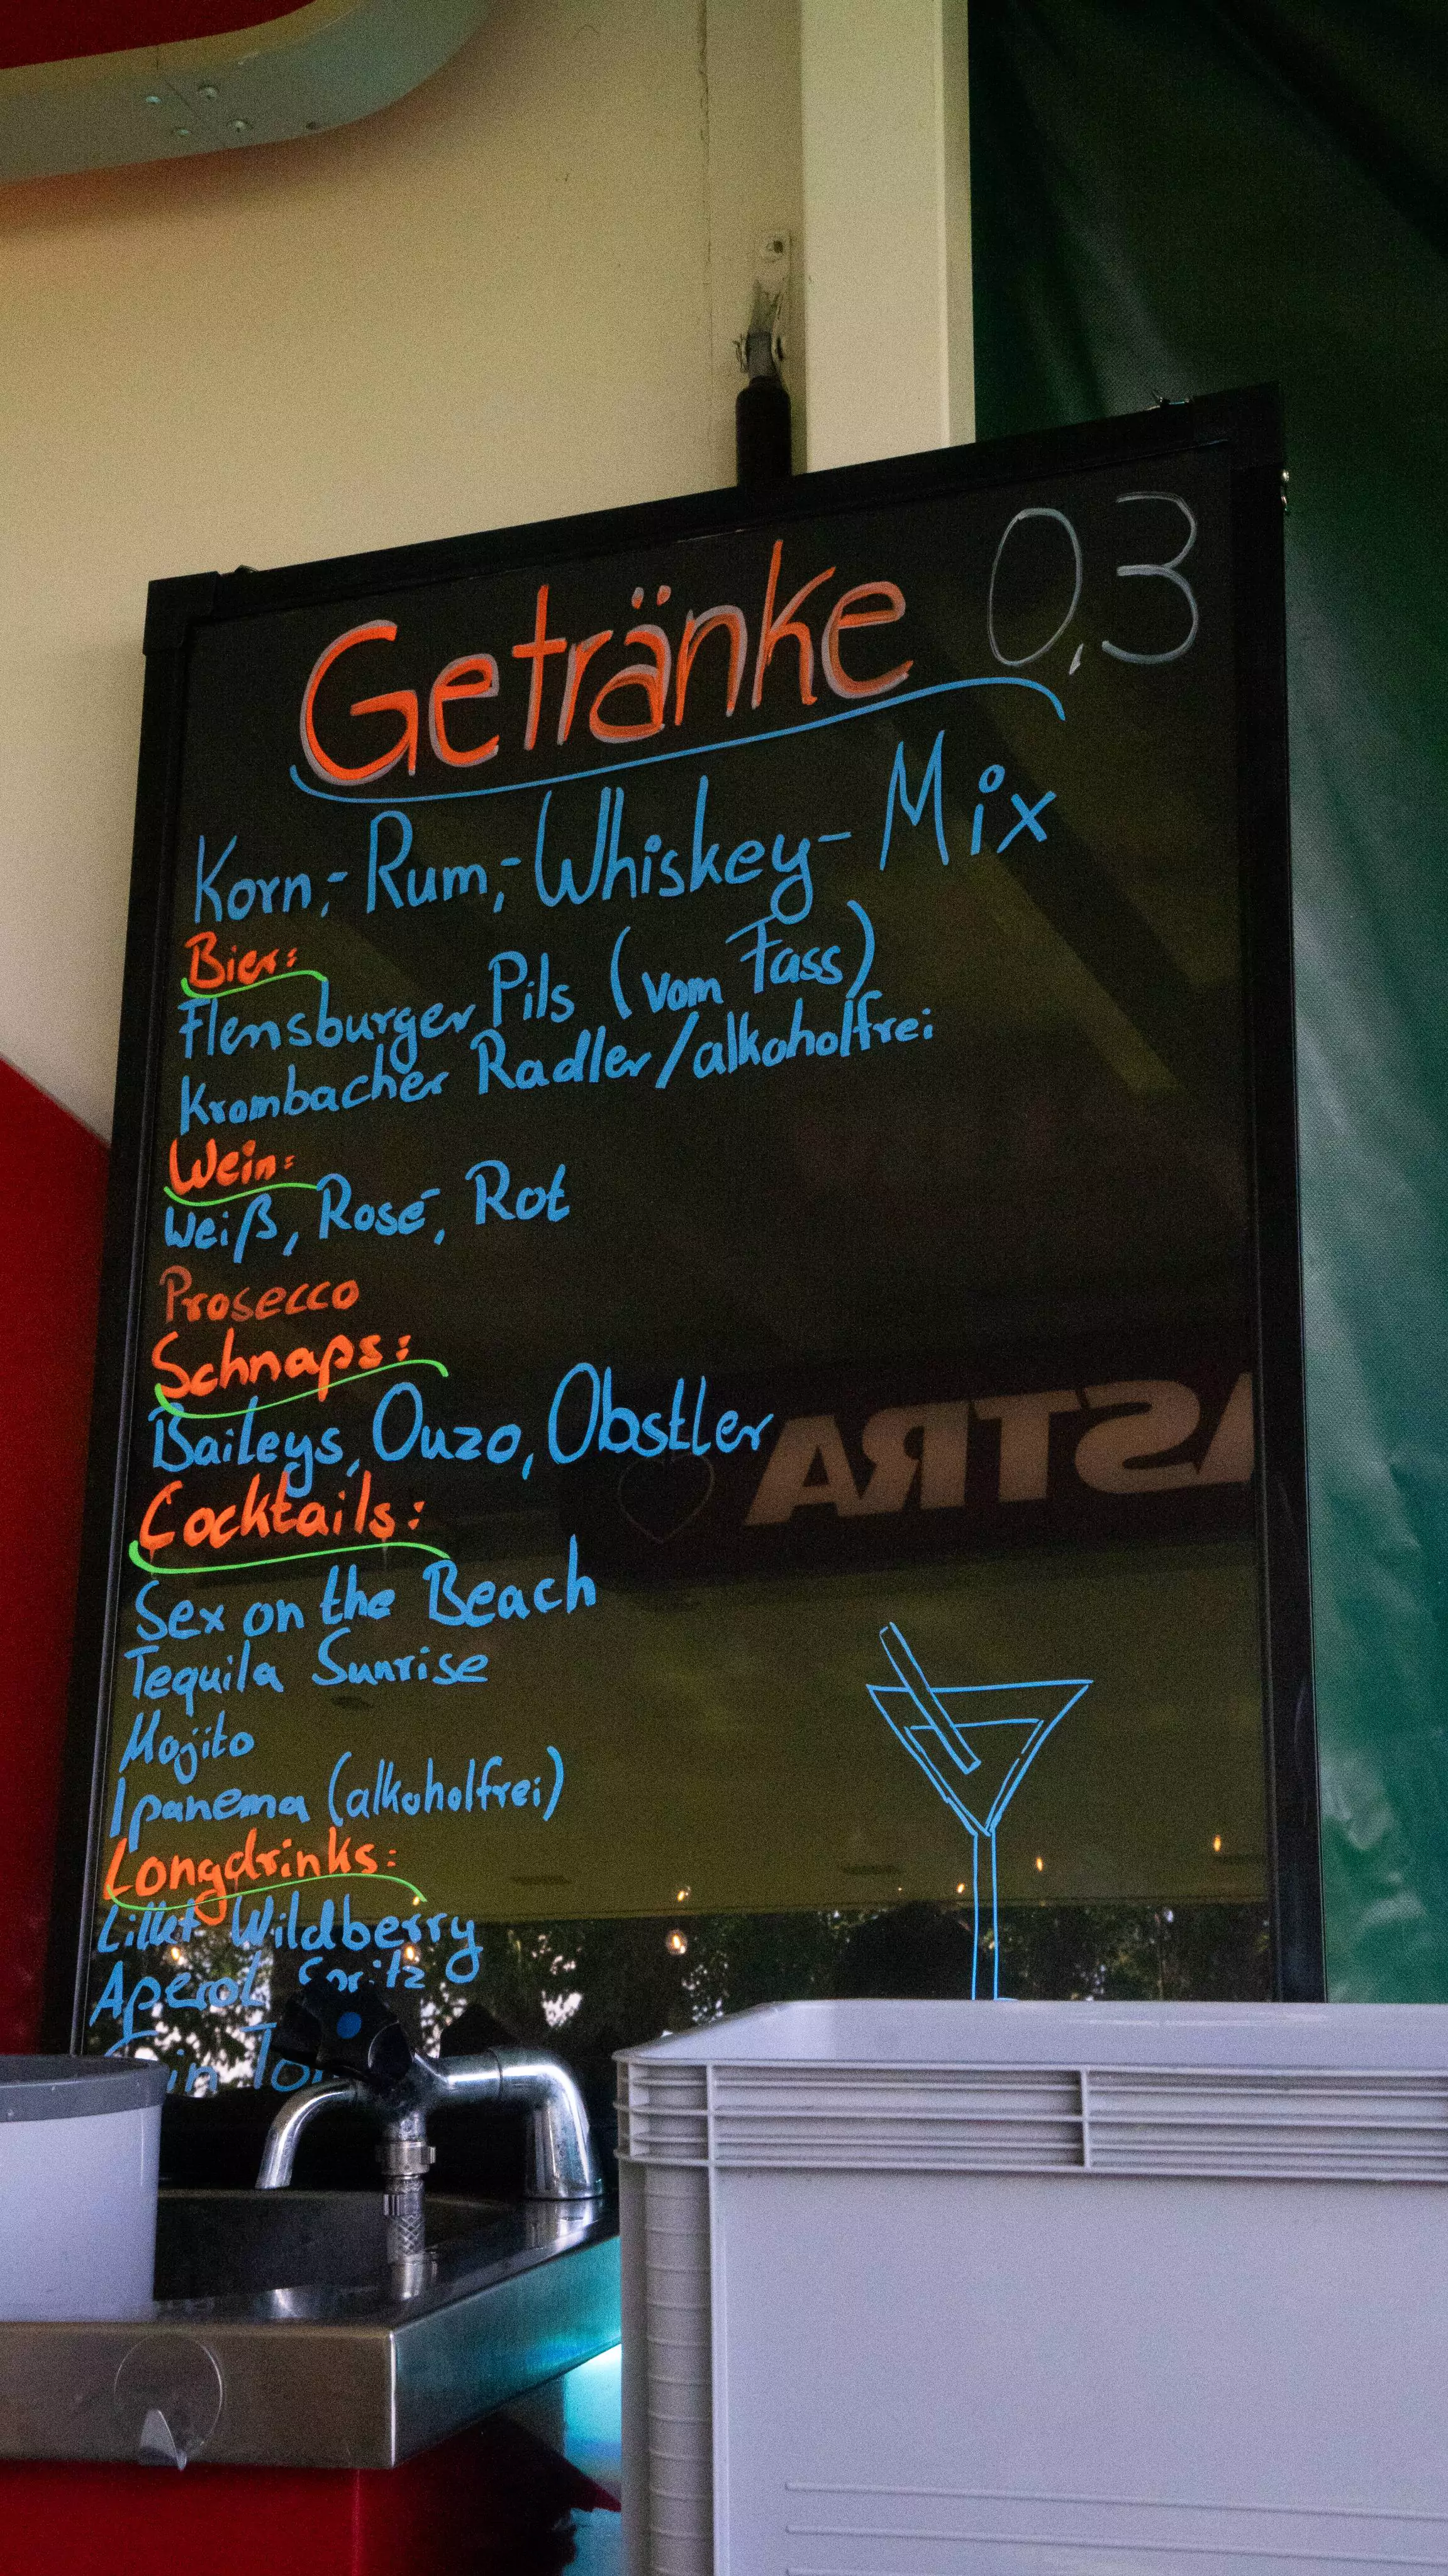 Getränke 0,3
Korn,- Rum,- Whiskey- Mix
Bier:
Flensburger Pils (vom Fass)
Krombacher Radler/alkoholfrei
Wein:
Weiß, Rosé, Rot
Prosecco
Schnaps:
Baileys, Ouzo, Obstler
ASTRA
Cocktails:
Sex on the Beach
Tequila Sunrise
Mojito
Ipanema (alkoholfrei)
Longdrinks:
Lillet Wildberry
Aperol Spritz